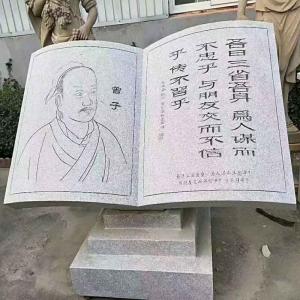 吾日三省吾身 爲人謀而
不忠乎 与朋友交而不信
乎 传不習乎
曾子